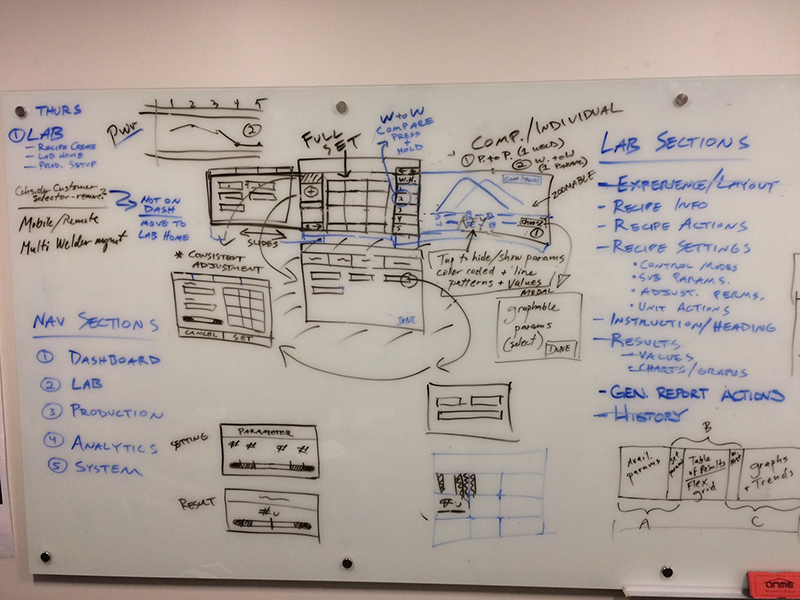 THURS
① LAB
- RECIPE CREATE
- LAB HOME
- PROD. SETUP
Consider Customer
Selector-remove?
NOT ON
DASH
MOVE TO
LAB HOME
Mobile/Remote
Multi Welder mgmt
1 2 3 4 5
PWR
②
FULL
SET
W to W
COMPARE
PRESS
+
HOLD
COMP./INDIVIDUAL
① P. to P. (1 WELD)
② W. to W
(1 Param)
ZOOMABLE
W.N.
2
3
4
5
KEY
①
SLIDES
* CONSISTENT
ADJUSTMENT
CANCEL SET
DONE
Tap to hide/show params
color coded + line
patterns + values
MODAL
graphable
params
(select)
DONE
NAV SECTIONS
① DASHBOARD
② LAB
③ PRODUCTION
④ ANALYTICS
⑤ SYSTEM
SETTING
PARAMETER
# # # #
RESULT
#u
#u
LAB SECTIONS
- EXPERIENCE/LAYOUT
- RECIPE INFO
- RECIPE ACTIONS
- RECIPE SETTINGS
• CONTROL MODES
• SUB PARAMS.
• ADJUST. PERMS.
• UNIT ACTIONS
- INSTRUCTION/HEADING
- RESULTS
- VALUES
- CHARTS/GRAPHS
- GEN. REPORT ACTIONS
- HISTORY
B
Avail.
params
Table
of Results
Flex
grid
graphs
+ Trends
A
C